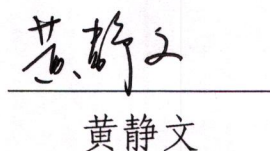 黄静文
黄静文